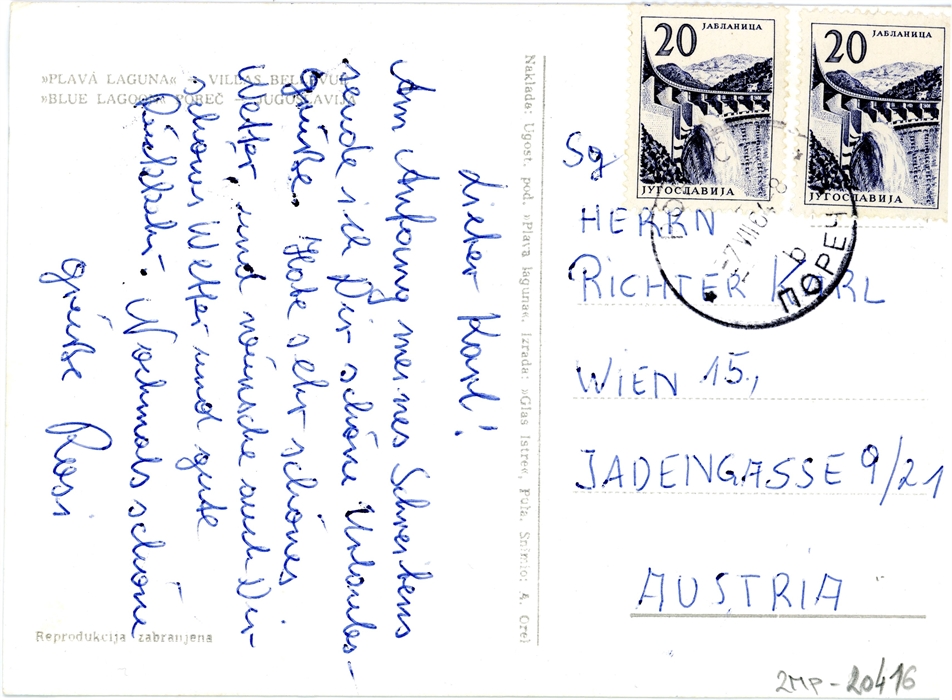 »PLAVA LAGUNA« - VILLAS BELLEVUE
»BLUE LAGOON« POREČ - JUGOSLAVIJA
Lieber Karl!
Am Anfang meines Schreibens
sende ich Dir schöne Urlaubs-
grüße. Habe sehr schönes
Wetter und wünsche auch Dir
schönes Wetter und gute
Rückkehr. Nochmals schöne
Grüße Rosi
Reprodukcija zabranjena
Naklada: Ugost. pod. »Plava laguna«, Izrada: »Glas Istre«, Pula. Snimio: A. Orel
20
ЈАБЛАНИЦА
ЈУГОСЛАВИЈА
20
ЈАБЛАНИЦА
ЈУГОСЛАВИЈА
ПОРЕЧ
Sg
HERRN
RICHTER KARL
WIEN 15.,
JADENGASSE 9/21
AUSTRIA
2MP-20416